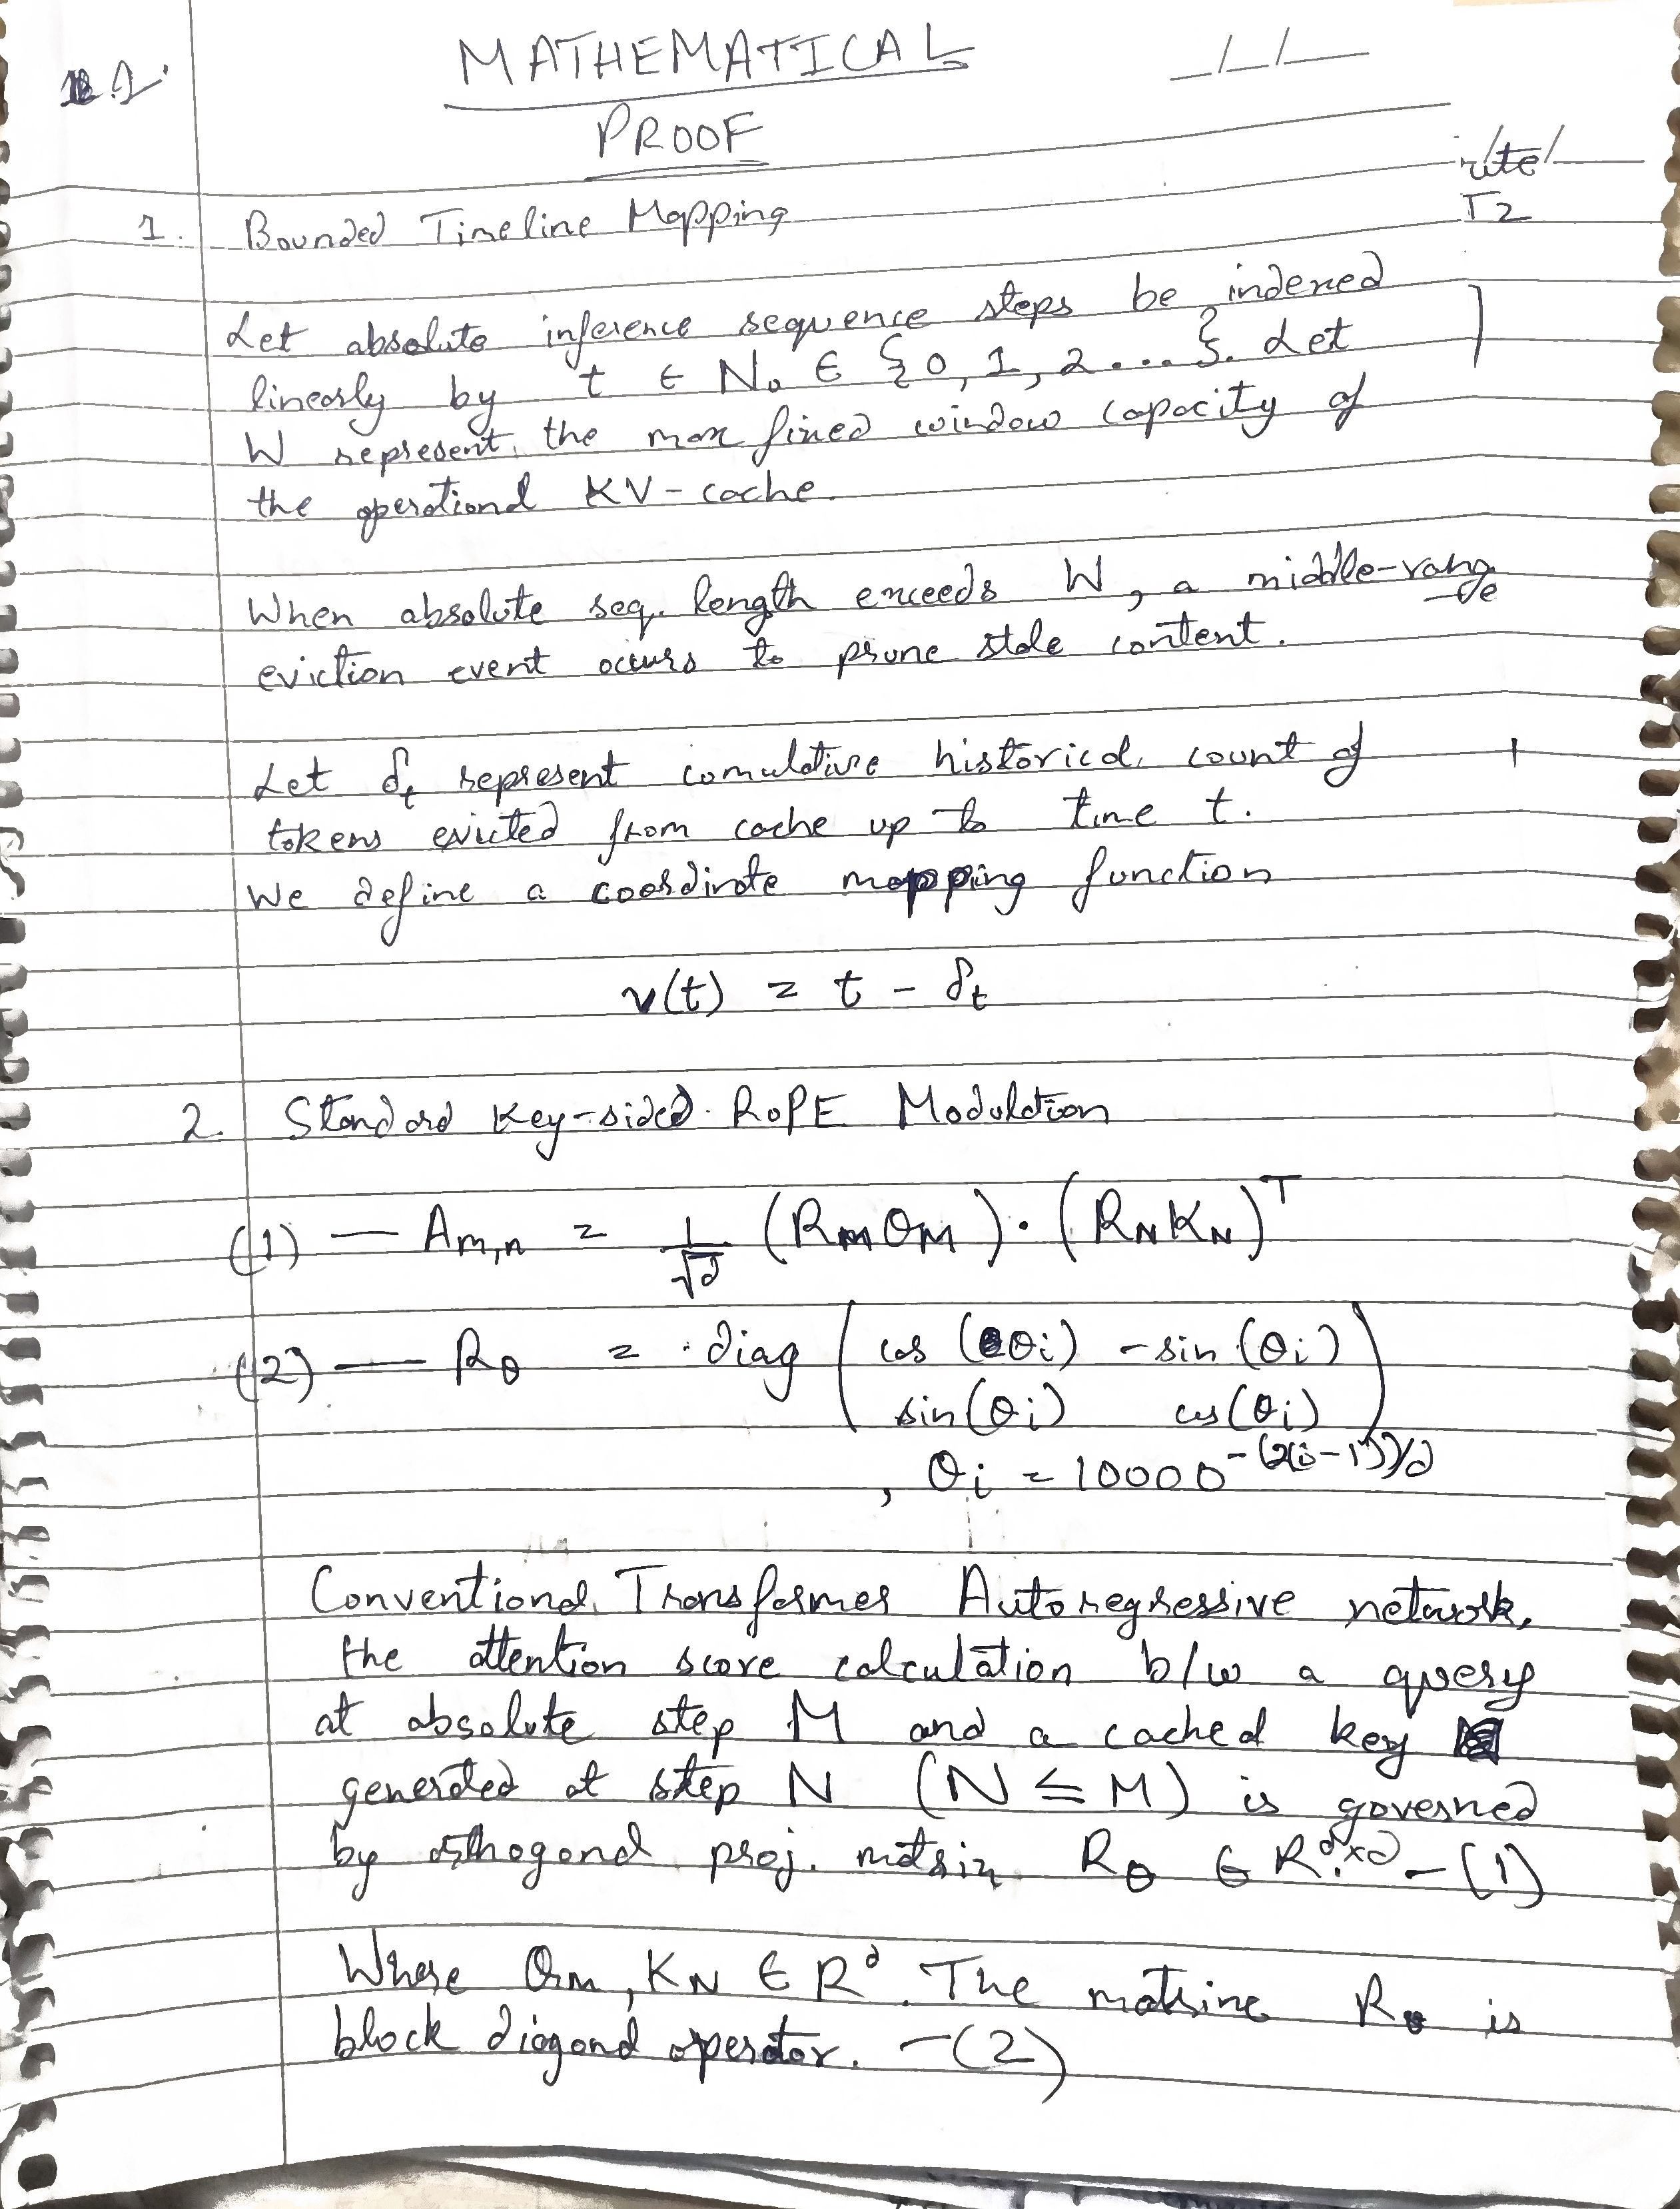 MATHEMATICAL
PROOF
1. Bounded Timeline Mapping
Let absolute inference sequence steps be indexed
linearly by t ∈ N₀ ∈ {0, 1, 2 ... }. Let
W represent the max fixed window capacity of
the operational KV-cache.
When absolute seq. length exceeds W, a middle-range
eviction event occurs to prune stale content.
Let δₜ represent comulative historical count of
tokens evicted from cache up to time t.
We define a coordinate mapping function
v(t) = t - δₜ
2. Standard Key-sided RoPE Modulation
(1) — Am,n = 1/√d (RM QM) · (RN KN)ᵀ
(2) — Rθ = diag ( cos (θi) - sin (θi)
sin(θi) cos(θi) )
, θi = 10000^-(2(i-1))/d
Conventional Transformer Autoregressive network,
the attention score calculation b/w a query
at absolute step M and a cached key
generated at step N (N ≤ M) is governed
by orthogonal proj. matrix Rθ ∈ R^d×d - (1)
Where Qm, KN ∈ R^d. The matrix Rθ is
block diagonal operator. - (2)
ite
T2